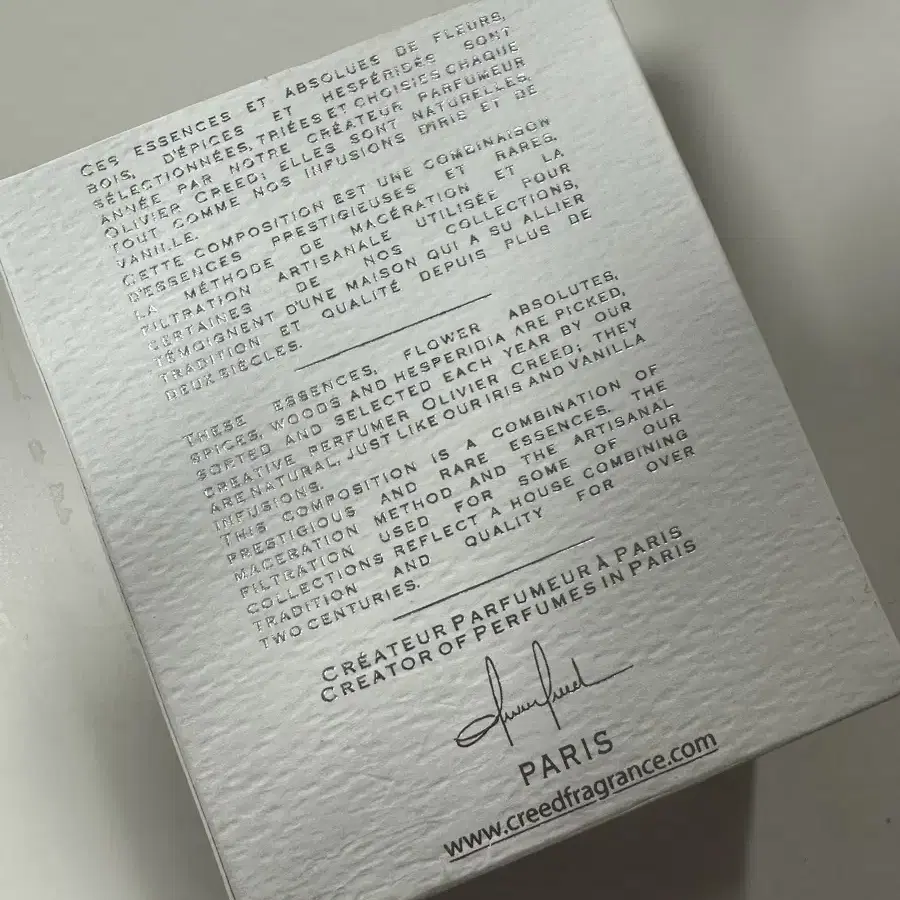 CES ESSENCES ET ABSOLUES DE FLEURS,
BOIS, D'ÉPICES ET HESPÉRIDÉS SONT
SÉLECTIONNÉES, TRIÉES ET CHOISIES CHAQUE
ANNÉE PAR NOTRE CRÉATEUR PARFUMEUR
OLIVIER CREED; ELLES SONT NATURELLES,
TOUT COMME NOS INFUSIONS D'IRIS ET DE
VANILLE.
CETTE COMPOSITION EST UNE COMBINAISON
D'ESSENCES PRESTIGIEUSES ET RARES.
LA MÉTHODE DE MACÉRATION ET LA
FILTRATION ARTISANALE UTILISÉE POUR
CERTAINES DE NOS COLLECTIONS,
TÉMOIGNENT D'UNE MAISON QUI A SU ALLIER
TRADITION ET QUALITÉ DEPUIS PLUS DE
DEUX SIÈCLES.
THESE ESSENCES, FLOWER ABSOLUTES,
SPICES, WOODS AND HESPERIDIA ARE PICKED,
SORTED AND SELECTED EACH YEAR BY OUR
CREATIVE PERFUMER OLIVIER CREED; THEY
ARE NATURAL, JUST LIKE OUR IRIS AND VANILLA
INFUSIONS.
THIS COMPOSITION IS A COMBINATION OF
PRESTIGIOUS AND RARE ESSENCES. THE
MACERATION METHOD AND THE ARTISANAL
FILTRATION USED FOR SOME OF OUR
COLLECTIONS REFLECT A HOUSE COMBINING
TRADITION AND QUALITY FOR OVER
TWO CENTURIES.
CRÉATEUR PARFUMEUR À PARIS
CREATOR OF PERFUMES IN PARIS
PARIS
www.creedfragrance.com